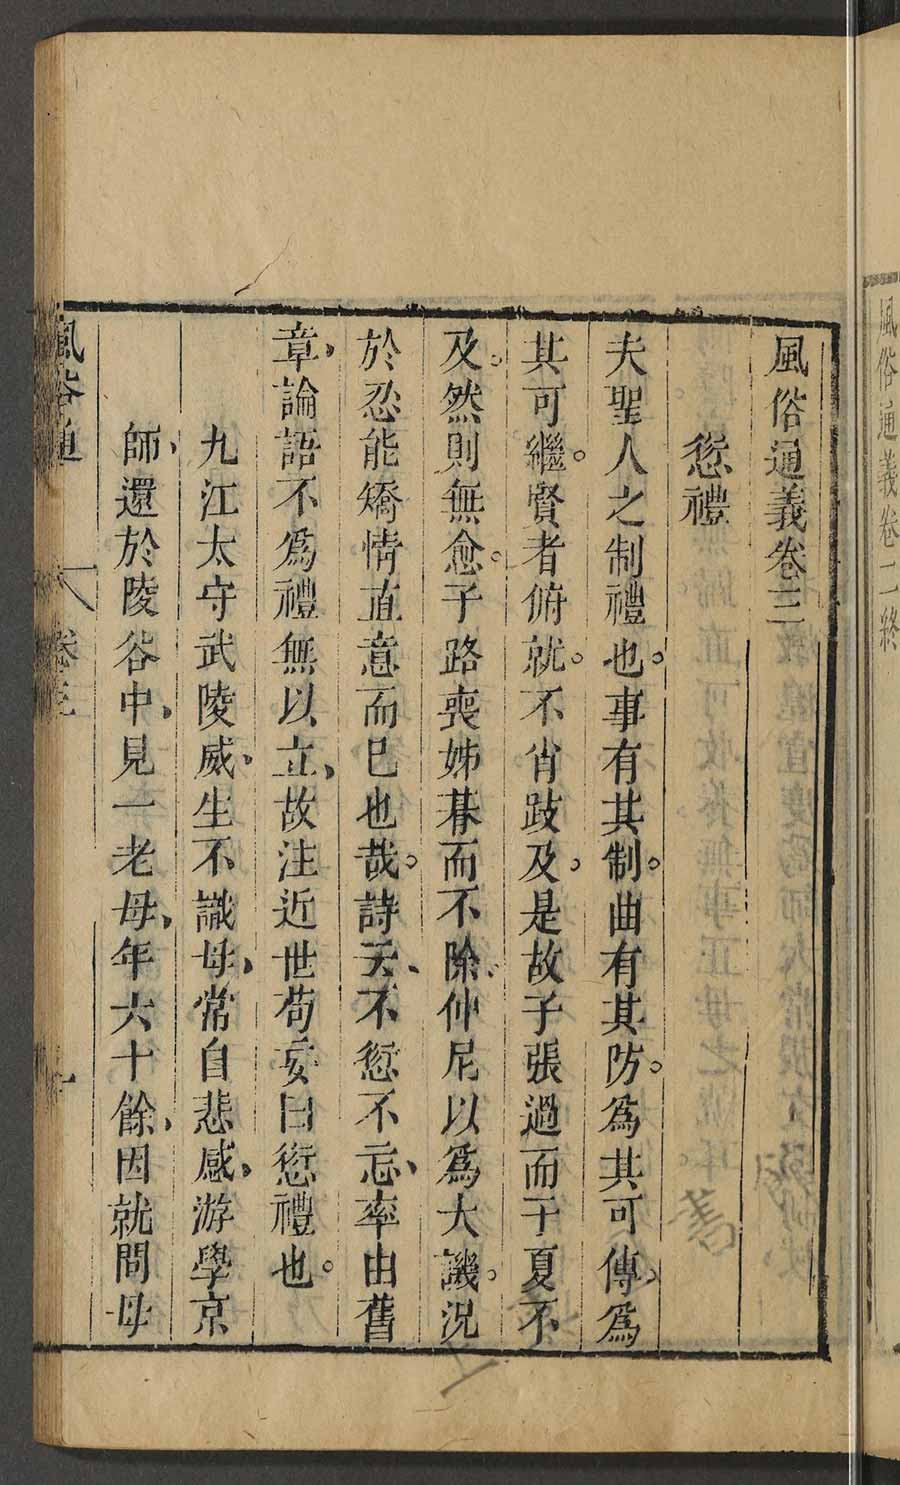 風俗通義卷二終
風俗通義卷三
愆禮
夫聖人之制禮也。事有其制。曲有其防。爲其可傳、爲
其可繼。賢者俯就。不肖跂及。是故子張過而干夏不
及。然則無愈。子路喪姊朞而不除、仲尼以爲大譏。況
於忍能矯情直意而已也哉。詩云、不愆不忘、率由舊
章、論語不爲禮無以立、故注近世苟妄曰愆禮也。
九江太守武陵威、生不識母、常自悲感、游學京
師、還於陵谷中、見一老母、年六十餘、因就問母
風俗通 卷三 一